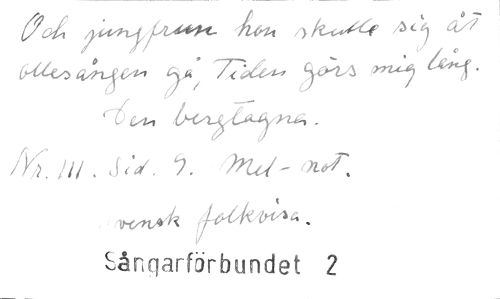 Och jungfrun hon skulle sig åt
ottesången gå, Tiden görs mig lång.
Den bergtagna.
Nr. III. Sid. 9. Mel-not.
Svensk folkvisa.
Sångarförbundet 2